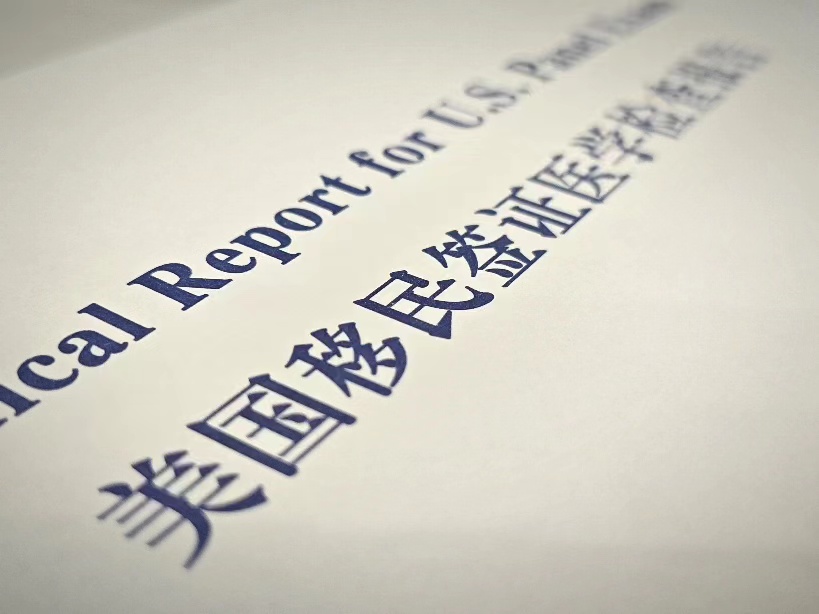 ical Report for U.S. Panel Exam
美国移民签证医学检查报告